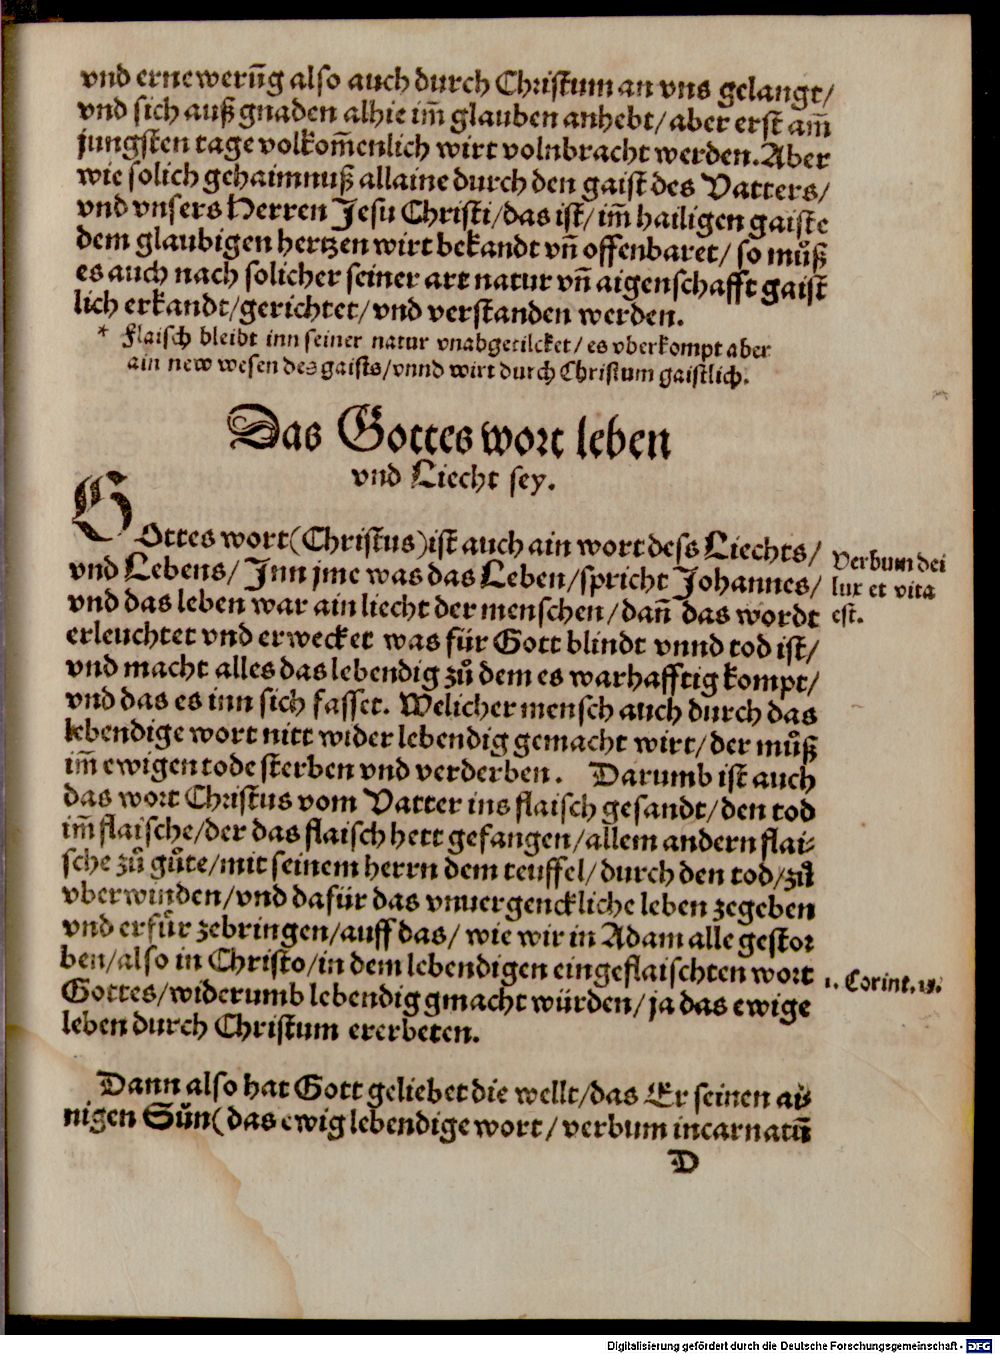 vnd ernewerūg also auch durch Christum an vns gelangt/
vnd sich auß gnaden alhie im̄ glauben anhebt/ aber erst am̄
jungsten tage volkom̄enlich wirt volnbracht werden. Aber
wie solich gehaimnuß allaine durch den gaist des Vatters/
vnd vnsers Herren Jesu Christi/das ist/ im̄ hailigen gaiste
dem glaubigen hertzen wirt bekandt vn̄ offenbaret/ so můß
es auch nach solicher seiner art natur vn̄ aigenschafft gaist
lich erkandt/gerichtet/ vnd verstanden werden.
* Flaisch bleibt inn seiner natur vnabgetilcket/ es vberkompt aber
ain new wesen des gaists/vnnd wirt durch Christum gaistlich.
Das Gottes wort leben
vnd Liecht sey.
GOttes wort(Christus)ist auch ain wort dess Liechts/
vnd Lebens/ Inn jme was das Leben/spricht Johannes/
vnd das leben war ain liecht der menschen/ dan̄ das wordt
erleuchtet vnd erwecket was für Gott blindt vnnd tod ist/
vnd macht alles das lebendig zů dem es warhafftig kompt/
vnd das es inn sich fasset. Welicher mensch auch durch das
lebendige wort nitt wider lebendig gemacht wirt/ der můß
im̄ ewigen tode sterben vnd verderben. Darumb ist auch
das wort Christus vom Vatter ins flaisch gesandt/ den tod
im̄ flaische/der das flaisch hett gefangen/allem andern flai-
sche zů gůte/mit seinem herrn dem teuffel/ durch den tod/zů
vberwinden/vnd dafür das vnuergenckliche leben zegeben
vnd erfür zebringen/auff das/ wie wir in Adam alle gestor
ben/also in Christo/in dem lebendigen eingeflaischten wort
Gottes/widerumb lebendig gmacht würden/ ja das ewige
leben durch Christum ererbeten.
Verbum dei
lux et vita
est.
1. Corint. 15.
Dann also hat Gott geliebet die wellt/das Er seinen ai-
nigen Sůn(das ewig lebendige wort/ verbum incarnatū
D
Digitalisierung gefördert durch die Deutsche Forschungsgemeinschaft - DFG